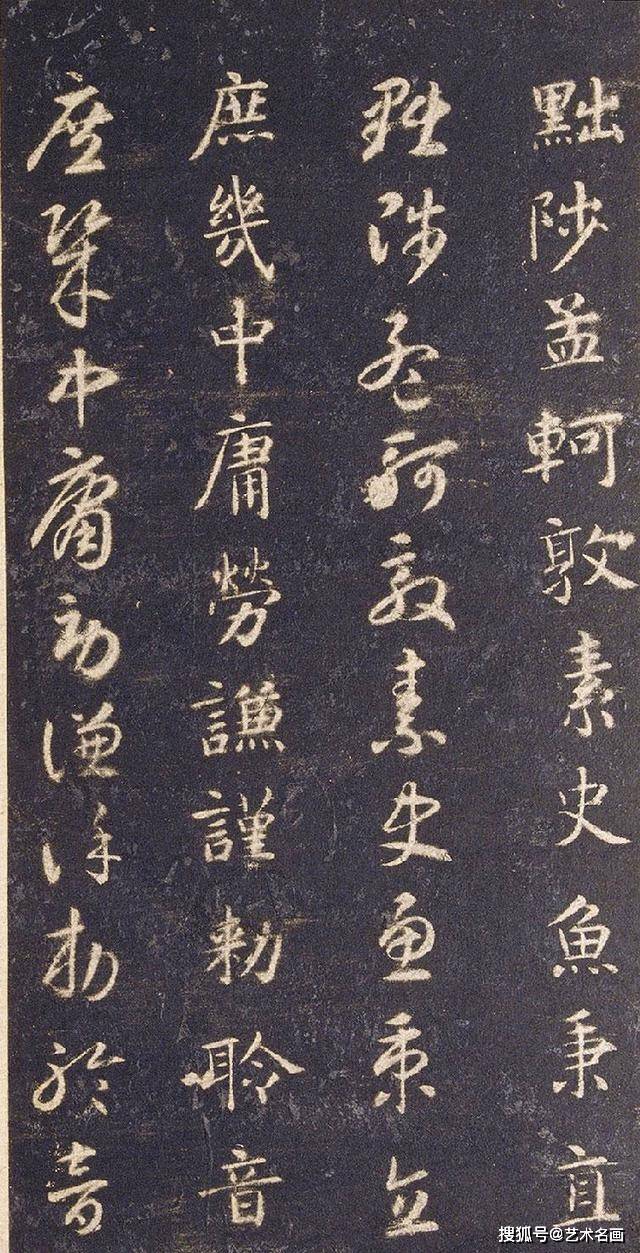 黜陟孟軻敦素史魚秉直
黜陟孟軻敦素史魚秉直
庶幾中庸勞謙謹勅聆音
庶幾中庸勞謙謹勅聆音
搜狐号@艺术名画